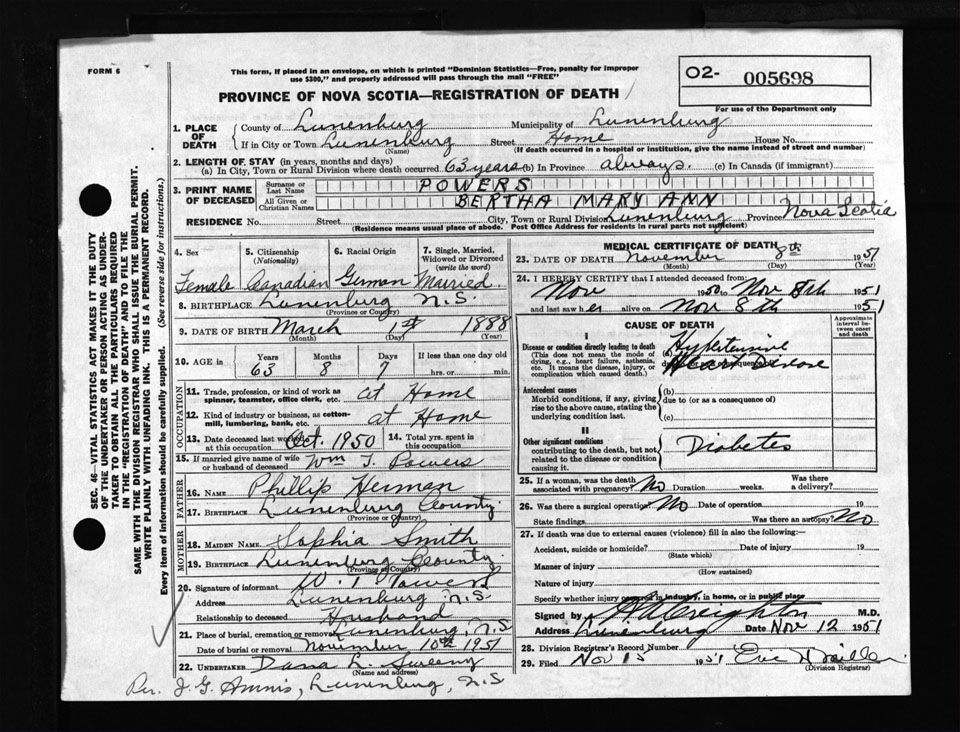 FORM 6
This form, if placed in an envelope, on which is printed "Dominion Statistics—Free, penalty for improper
use $300," and properly addressed will pass through the mail "FREE"
O2- 005698
For use of the Department only
PROVINCE OF NOVA SCOTIA—REGISTRATION OF DEATH
1. PLACE OF DEATH { County of Lunenburg Municipality of Lunenburg
If in City or Town Lunenburg Street Home House No.
(Name) (If death occurred in a hospital or institution, give the name instead of street and number)
2. LENGTH OF STAY (in years, months and days)
(a) In City, Town or Rural Division where death occurred 63 years (b) In Province always. (c) In Canada (if immigrant)
3. PRINT NAME OF DECEASED { Surname or Last Name POWERS
All Given or Christian Names BERTHA MARY ANN
RESIDENCE No. Street City, Town or Rural Division Lunenburg Province Nova Scotia
(Residence means usual place of abode. Post Office Address for residents in rural parts not sufficient)
SEC. 46—VITAL STATISTICS ACT MAKES IT THE DUTY
OF THE UNDERTAKER OR PERSON ACTING AS UNDER-
TAKER TO OBTAIN ALL THE PARTICULARS REQUIRED
IN THE "REGISTRATION OF DEATH" AND TO FILE THE
SAME WITH THE DIVISION REGISTRAR WHO SHALL ISSUE THE BURIAL PERMIT.
WRITE PLAINLY WITH UNFADING INK. THIS IS A PERMANENT RECORD.
Every item of information should be carefully supplied. (See reverse side for instructions.)
4. Sex 5. Citizenship (Nationality) 6. Racial Origin 7. Single, Married, Widowed or Divorced (write the word)
Female Canadian German Married.
8. BIRTHPLACE Lunenburg N.S.
(Province or Country)
9. DATE OF BIRTH March 1st 1888
(Month) (Day) (Year)
10. AGE in { Years Months Days If less than one day old
63 8 7 hrs. or min.
OCCUPATION
11. Trade, profession, or kind of work as spinner, teamster, office clerk, etc. at Home
12. Kind of industry or business, as cotton-mill, lumbering, bank, etc. at Home
13. Date deceased last worked at this occupation Oct. 1950 14. Total yrs. spent in this occupation
15. If married give name of wife or husband of deceased Wm T. Powers
FATHER
16. Name Phillip Herman
17. Birthplace Lunenburg County
(Province or Country)
MOTHER
18. Maiden Name Sophia Smith
19. Birthplace Lunenburg County
(Province or Country)
20. Signature of informant W. T. Powers
Address Lunenburg N.S
Relationship to deceased Husband
21. Place of burial, cremation or removal Lunenburg, N.S
Date of burial or removal November 10th 1951
22. UNDERTAKER Dana L. Sweeny
(Name and address)
Per. J. G. Lunenburg, N.S
MEDICAL CERTIFICATE OF DEATH
23. DATE OF DEATH November 8th 1951
(Month) (Day) (Year)
24. I HEREBY CERTIFY that I attended deceased from:
Nov 1950 to Nov 8th 1951
and last saw her alive on Nov 8th 1951
CAUSE OF DEATH
Approximate interval between onset and death
I
Disease or condition directly leading to death (This does not mean the mode of dying, e.g., heart failure, asthenia, etc. It means the disease, injury, or complication which caused death.)
(a) Hypertensive Heart Disease
Antecedent causes
Morbid conditions, if any, giving rise to the above cause, stating the underlying condition last.
(b)
due to (or as a consequence of)
(c)
II
Other significant conditions contributing to the death, but not related to the disease or condition causing it.
Diabetes
25. If a woman, was the death associated with pregnancy? No Duration weeks. Was there a delivery?
26. Was there a surgical operation? No Date of operation 19
State findings Was there an autopsy? No
27. If death was due to external causes (violence) fill in also the following:—
Accident, suicide or homicide? Date of injury 19
(State which)
Manner of injury
(How sustained)
Nature of injury
Specify whether injury occurred in industry, in home, or in public place
Signed by Creighton M.D.
Address Lunenburg Date Nov 12 1951
28. Division Registrar's Record Number
29. Filed Nov 15 1951
(Division Registrar)